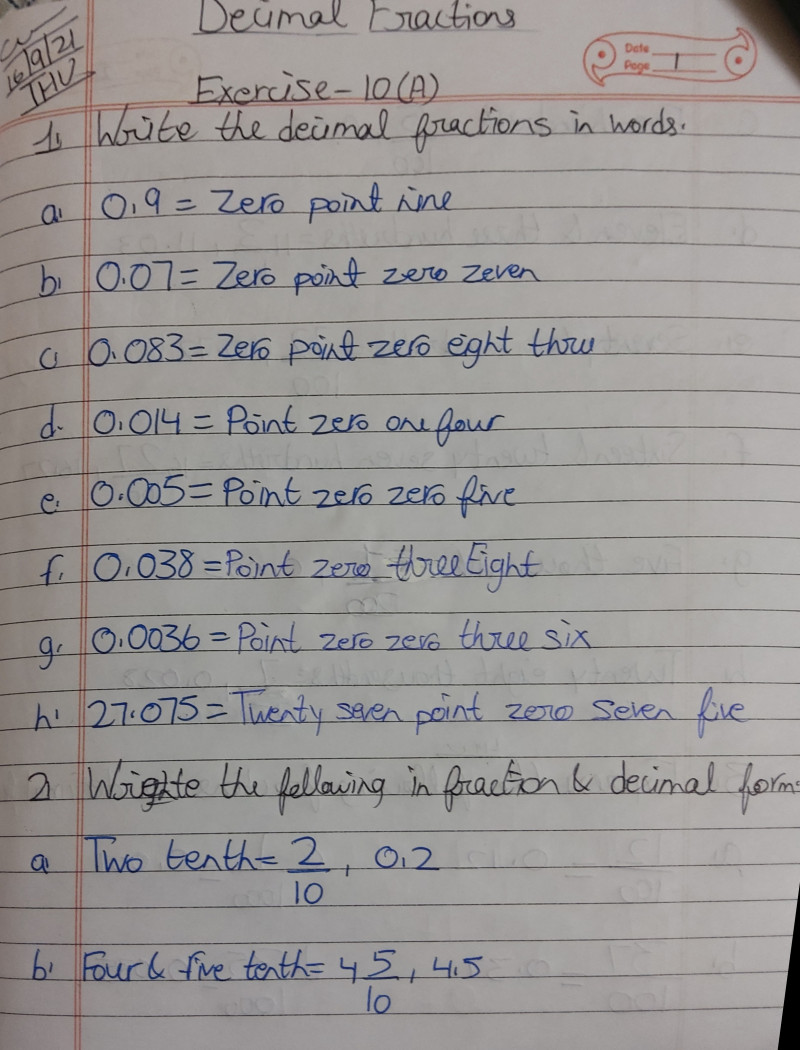 Decimal Fractions
16/9/21
THU
Date
Page 1
Exercise-10(A)
1. Write the decimal fractions in words.
a. 0.9 = Zero point nine
b. 0.07 = Zero point zero zeven
c. 0.083 = Zero point zero eight three
d. 0.014 = Point zero one four
e. 0.005 = Point zero zero five
f. 0.038 = Point zero three Eight
g. 0.0036 = Point zero zero three six
h. 27.075 = Twenty seven point zero seven five
2 Wrighte the following in fraction & decimal form.
a Two tenth = 2/10, 0.2
b. Four & five tenth = 4 5/10, 4.5